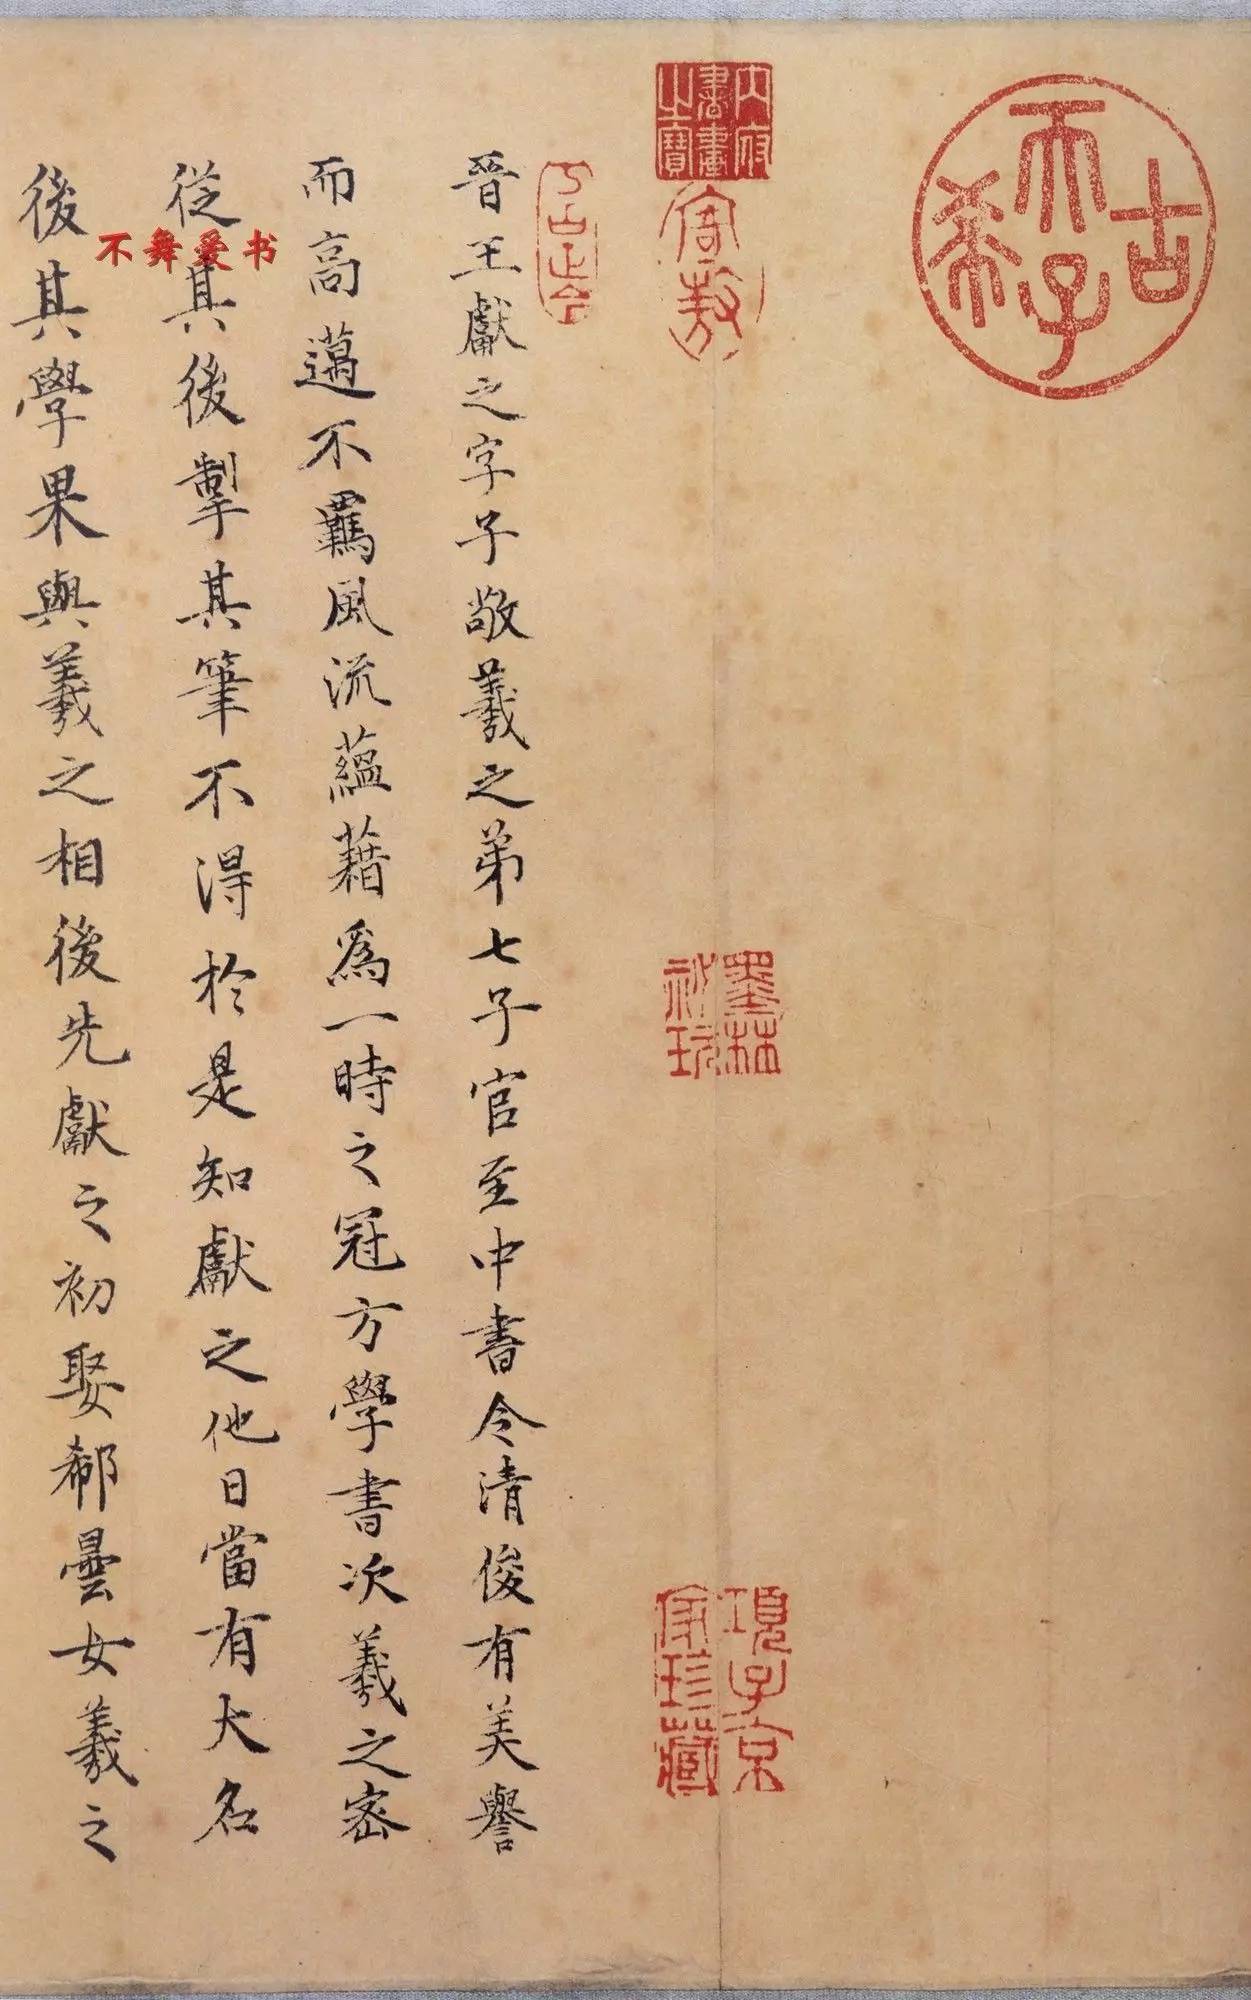 古希天子
內府書畫之寶
寄敖
墨林秘玩
項子京家珍藏
晉王獻之字子敬羲之弟七子官至中書令清俊有美譽
而高邁不羈風流蘊藉為一時之冠方學書次羲之密
從其後掣其筆不得於是知獻之他日當有大名
後其學果與羲之相後先獻之初娶郗曇女羲之
不舞爱书